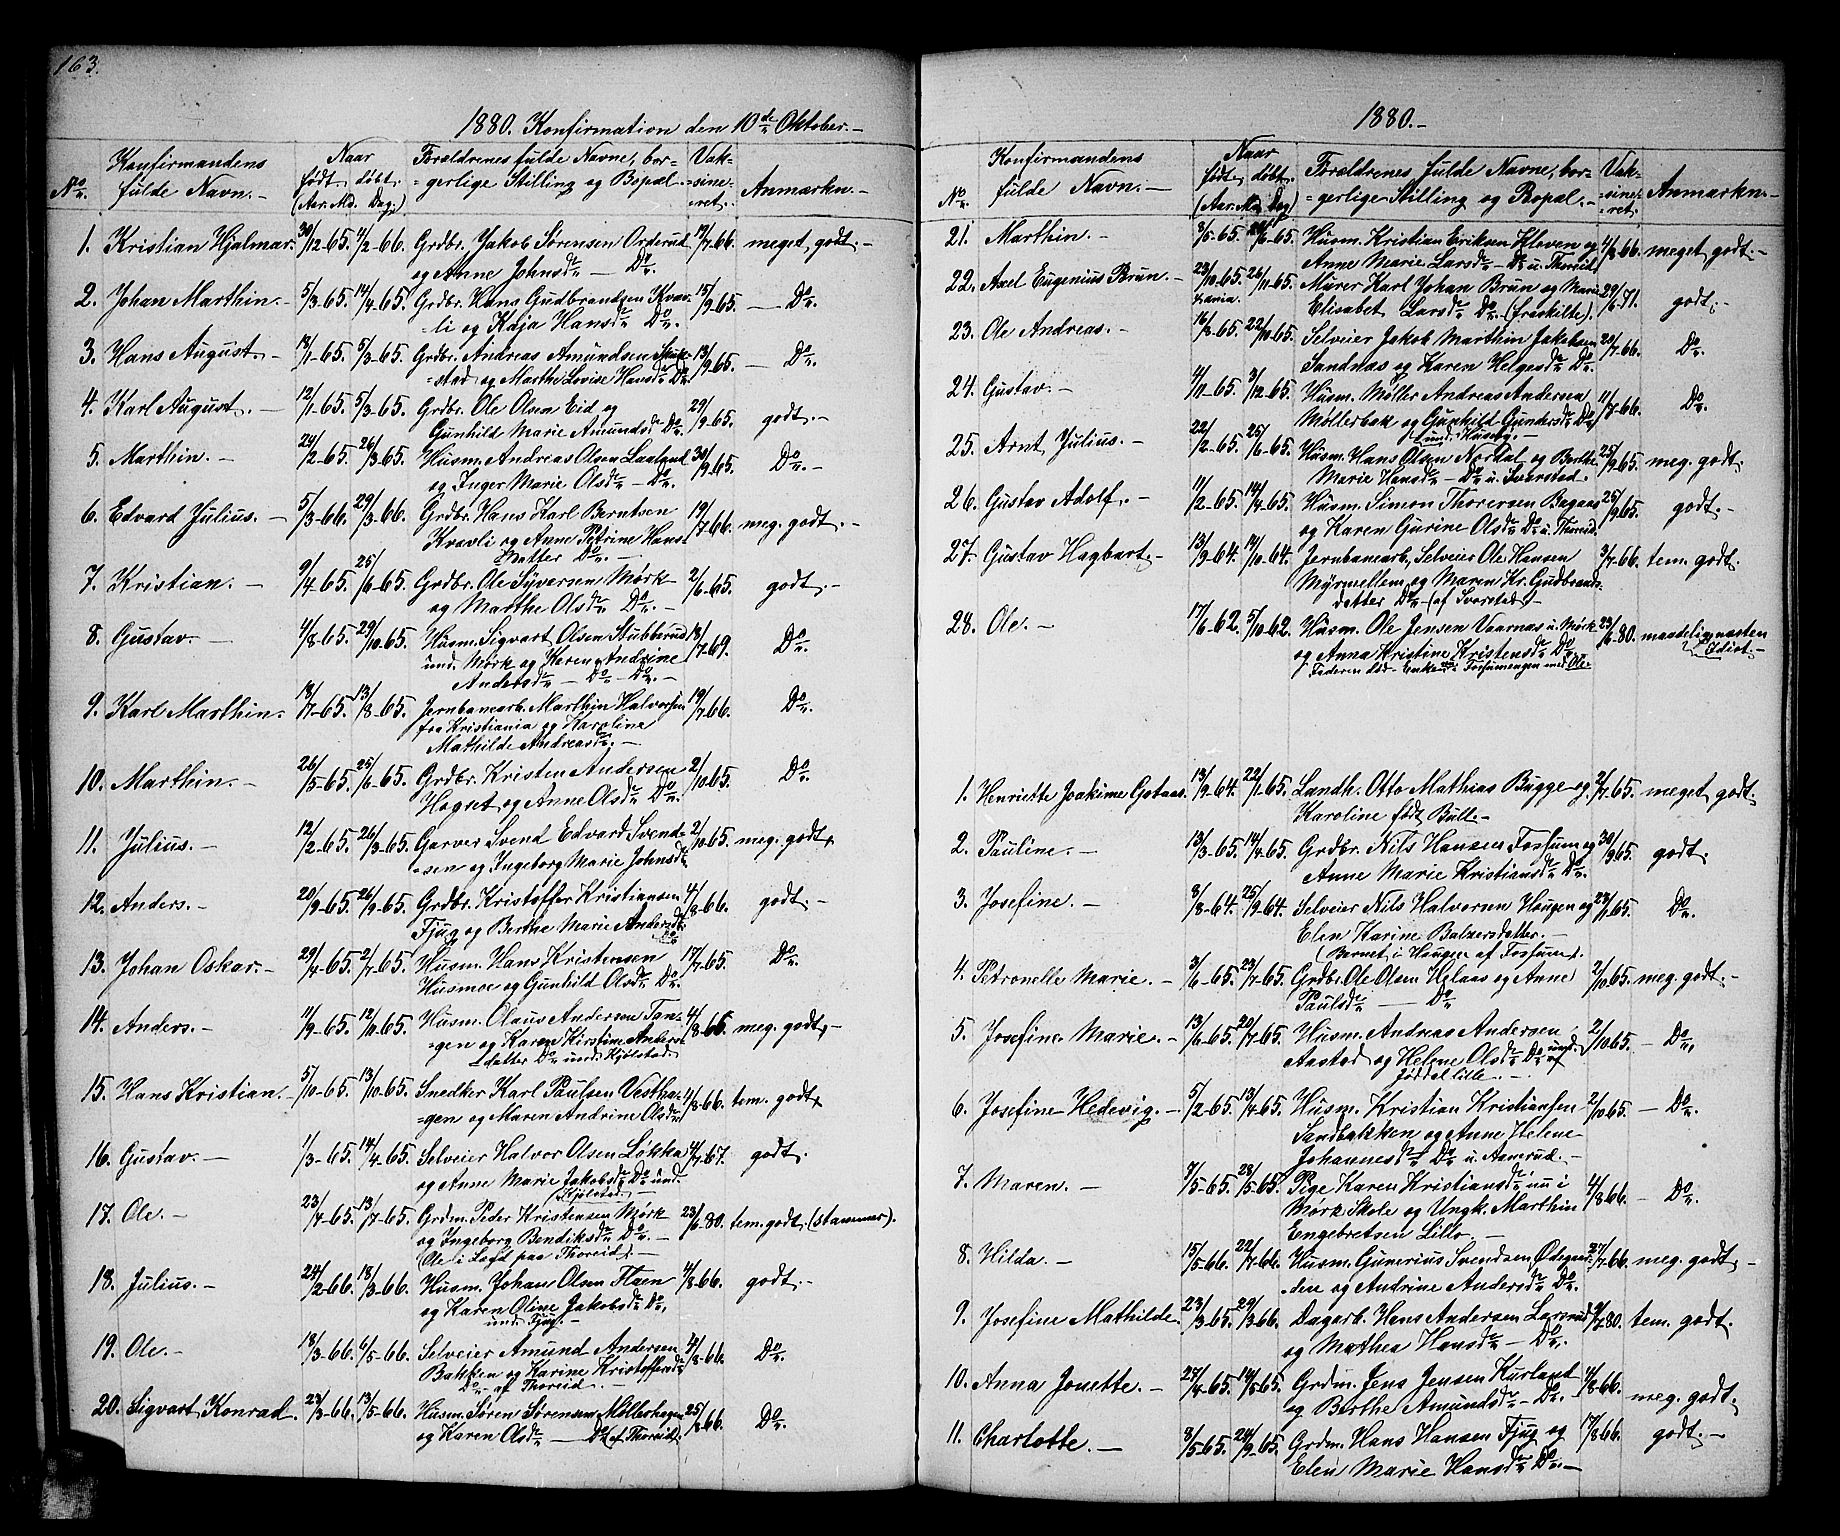 163.
1880. Konfirmation den 10de Oktober.-
No Konfirmandens fulde Navn.- Naar født døbt (Aar. Md. Dag.) Forældrenes fulde Navne, borgerlige Stilling og Bopæl.- Vaksineret. Anmærkn.-
1. Kristian Hjalmar. 30/12-65. 4/2-66. Grdbr. Jakob Sørensen Orderud 19/7-66. meget godt.-
og Anne Johnsdr - Do.
2. Johan Marthin.- 5/3-65. 14/4-65. Grdbr. Hans Gudbrandsen Krav- 15/9-65. - Do.
=li og Kaja Hansdr Do.
3. Hans August.- 13/1-65. 5/3-65. Grdbr. Andreas Amundsen 13/9-65. - Do.
=stad og Marthe Lovise Hansdr Do.
4. Karl August.- 12/1-65. 5/3-65. Grdbr. Ole Olsen Eid og 29/9-65. godt.-
Gunhild Marie Amundsdr Do.
5. Marthin.- 24/2-65. 26/3-65. Husm. Andreas Olsen Laaland 30/9-65. Do.-
og Inger Marie Olsdr - Do.
6. Edvard Julius.- 5/3-66. 29/3-66. Grdbr. Hans Karl Berntsen 19/7-66. meg. godt.-
Kravli og Anne Petrine Hans-
Datter Do.-
7. Kristian.- 9/4-65. 25/6-65. Grdbr. Ole Syversen Mørk 2/6-65. godt.-
og Marthe Olsdr Do.-
8. Gustav.- 4/8-65. 29/10-65. Husm. Sigvart Olsen Stubberud 18/7-69. Do.
und. Mørk og Karen Andrine
Andersdr - Do - Do.-
9. Karl Marthin. 18/7-65. 13/8-65. Jernbanearb. Marthin Halvorsen 19/7-66. Do.
fra Kristiania og Karoline
Mathilde Andreasdr.-
10. Marthin.- 26/5-65. 25/6-65. Grdbr. Kristen Andersen 2/10-65. Do.
Hogset og Anne Olsdr Do.
11. Julius.- 12/2-65. 26/3-65. Garver Svend Edvard Svend- 2/10-65. meg. godt.
=sen og Ingeborg Marie Johnsdr
12. Anders.- 20/9-65 26/9-65. Grdbr. Kristoffer Kristiansen 4/8-66. godt.-
Fjug og Berthe Marie Andersdr
Do
13. Johan Oskar.- 29/4-65. 2/7-65. Husm. Hans Kristensen 17/7-65. Do.
Husmoe og Gunhild Olsdr Do.
14. Anders.- 11/9-65. 12/11-65. Husm. Olaus Andersen Tan- 4/8-66. meg. godt.-
=gen og Karen Kirstine Anders-
datter Do und. Kjølstad.
15. Hans Kristian.- 5/10-65. 13/10-65. Snedker Karl Paulsen Vestha- 4/8-66. tem. godt.
=gen og Maren Andrine Olsdr
16. Gustav.- 1/3-65. 14/4-65. Selveier Halvor Olsen Løkka 4/7-67. godt.
og Anne Marie Jakobsdr Do und.
Kjølstad.-
17. Ole.- 23/4-65. 13/7-65. Grdm. Peder Kristensen Mørk 23/6-80. tem. godt (stammer).
og Ingeborg Bendiksdr Do.-
(Ole i Lægd paa Thoreid).-
18. Julius.- 24/2-66. 18/3-66. Husm. Johan Olsen Flaen 4/8-66. godt.-
og Karen Oline Jakobsdr Do.
und. Fjug.-
19. Ole.- 18/3-66. 6/5-66. Selveier Amund Andersen 4/8-66. Do.
Bakken og Karine Kristoffersdr
Do - af Thoreid.-
20. Sigvart Konrad. 23/3-66. 13/5-66. Husm. Søren Sørensen Møllerhagen 25/8-66. Do.
og Karen Olsdr - Do (af Thoreid)
1880.-
No Konfirmandens fulde Navn.- Naar født døbt (Aar. Md. Dag) Forældrenes fulde Navne, borgerlige Stilling og Bopæl.- Vaksineret. Anmærkn.-
21. Marthin.- 8/5-65. 24/6-65. Husm. Kristian Eriksen Kleven og 4/8-66. meget godt.-
Anne Marie Larsdr - Do u. Thoreid
22. Axel Eugenius Brun.- 23/10-65. 26/11-65. Murer Karl Johan Brun og Marie 29/6-71. godt.-
Elisabet Larsdr Do (fraskilte).
23. Ole Andreas.- 16/8-65. 22/10-65. Selveier Jakob Marthin Jakobsen 20/7-66. Do.
Sandnæs og Karen Helgesdr Do.
24. Gustav.- 4/11-65. 3/12-65. Husm. Møller Andreas Andersen 11/7-66. Do.
Møllerbak og Gunhild Gundersdr Do
und. Huseby.-
25. Arnt Julius.- 22/2-65. 25/6-65. Husm. Hans Olsen Nordal og Berthe 25/9-65. meg. godt.
Marie Hansdr - Do u. Svarstad.
26. Gustav Adolf.- 11/2-65. 14/4-65. Husm. Simon Thoresen Bagaas 25/9-65. godt.-
og Karen Gurine Olsdr Do u. Thoreid.
27. Gustav Hagbart.- 13/9-64. 14/10-64. Jernbanearb. Selveier Ole Hansen 3/7-66. tem. godt.
Myrmellem og Maren Kr. Gudbrands-
datter Do (af Svarstad)-
28. Ole.- 17/6-62. 5/10-62. Husm. Ole Jensen Vaarnæs u. Mørk 23/6-80. maadelig, næsten
og Anna Kristine Kristensdr Do Idiot.-
Faderen død - Enken Fossumengen med Ole.
1. Henriette Joakime Gotaas. 13/9-64. 22/1-65. Landh. Otto Mathias Bugge og 2/7-65. meget godt.
Karoline født Bull.-
2. Pauline.- 13/3-65. 14/4-65. Grdbr. Nils Hansen Fossum og 30/9-65. godt.
Anne Marie Kristiansdr Do.
3. Josefine.- 8/8-64. 25/9-64. Selveier Nils Halvorsen Haugen og 23/1-65. Do.
Elen Karine Balzersdatter.-
(Barnet i Haugen af Fossum).
4. Petronelle Marie.- 3/6-65. 23/7-65. Grdbr. Ole Olsen Helaas og Anne 2/10-65. meg. godt.-
Paulsdr - Do
5. Josefine Marie.- 13/6-65. 20/7-65. Husm. Andreas Andersen 2/10-65. - Do.
Aastad og Helene Olsdr Do und.
Jøddal lille.-
6. Josefine Hedevig.- 5/2-65. 13/4-65. Husm. Kristian Kristiansen 2/10-65. - Do.
Sandbakken og Anne Helene
Johannesdr Do u. Aamrud.-
7. Maren.- 7/5-65. 28/5-65. Pige Karen Kristiansdr nu i 4/8-66. - Do.
Mørk Skole og Ungk. Marthin
Engebretsen Lillo.-
8. Hilda.- 15/5-66. 22/7-66. Husm. Gunerius Svendsen Ødegaar- 27/7-66. meg. godt.-
=den og Andrine Andersdr Do.
9. Josefine Mathilde. 23/3-65. 29/3-66. Dagarb. Hans Andersen Larsrud 9/7-80. tem. godt.
og Mathea Hansdr - Do.
10. Anna Jonette.- 27/4-65. 14/5-65. Grdm. Jens Jensen Kurland 4/8-66. meg. godt.
og Berthe Amundsdr - Do.
11. Charlotte.- 8/5-65. 24/9-65. Grdm. Hans Hansen Fjug og 17/8-66. godt.-
Elen Marie Hansdr Do.-